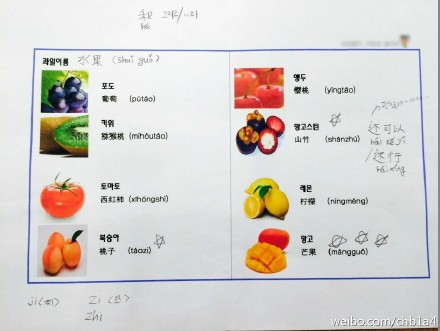 和
hé
과일이름 水果 (shuǐ guǒ)
포도
葡萄 (pútáo)
키위
猕猴桃 (míhóutáo)
토마토
西红柿 (xīhóngshì)
복숭아
桃子 (táozi)
앵두
樱桃 (yīngtáo)
망고스틴
山竹 (shānzhú)
还可以
hái kěyǐ
还行
hái xíng
레몬
柠檬 (níngméng)
망고
芒果 (mángguǒ)
ji (지) Zi (쯔)
Zhi
weibo.com/chb1a4